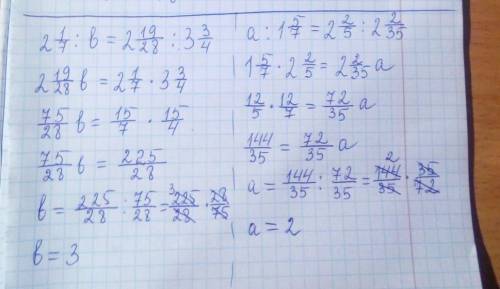 2 1/7 : в = 2 19/28 : 3 3/4
2 19/28 в = 2 1/7 · 3 3/4
75/28 в = 15/7 · 15/4
75/28 в = 225/28
в = 225/28 : 75/28 = 3 225/28 · 28/75
в = 3
a : 1 5/7 = 2 2/5 : 2 2/35
1 5/7 · 2 2/5 = 2 2/35 a
12/5 · 12/7 = 72/35 a
144/35 = 72/35 a
a = 144/35 : 72/35 = 2 144/35 · 35/72
a = 2